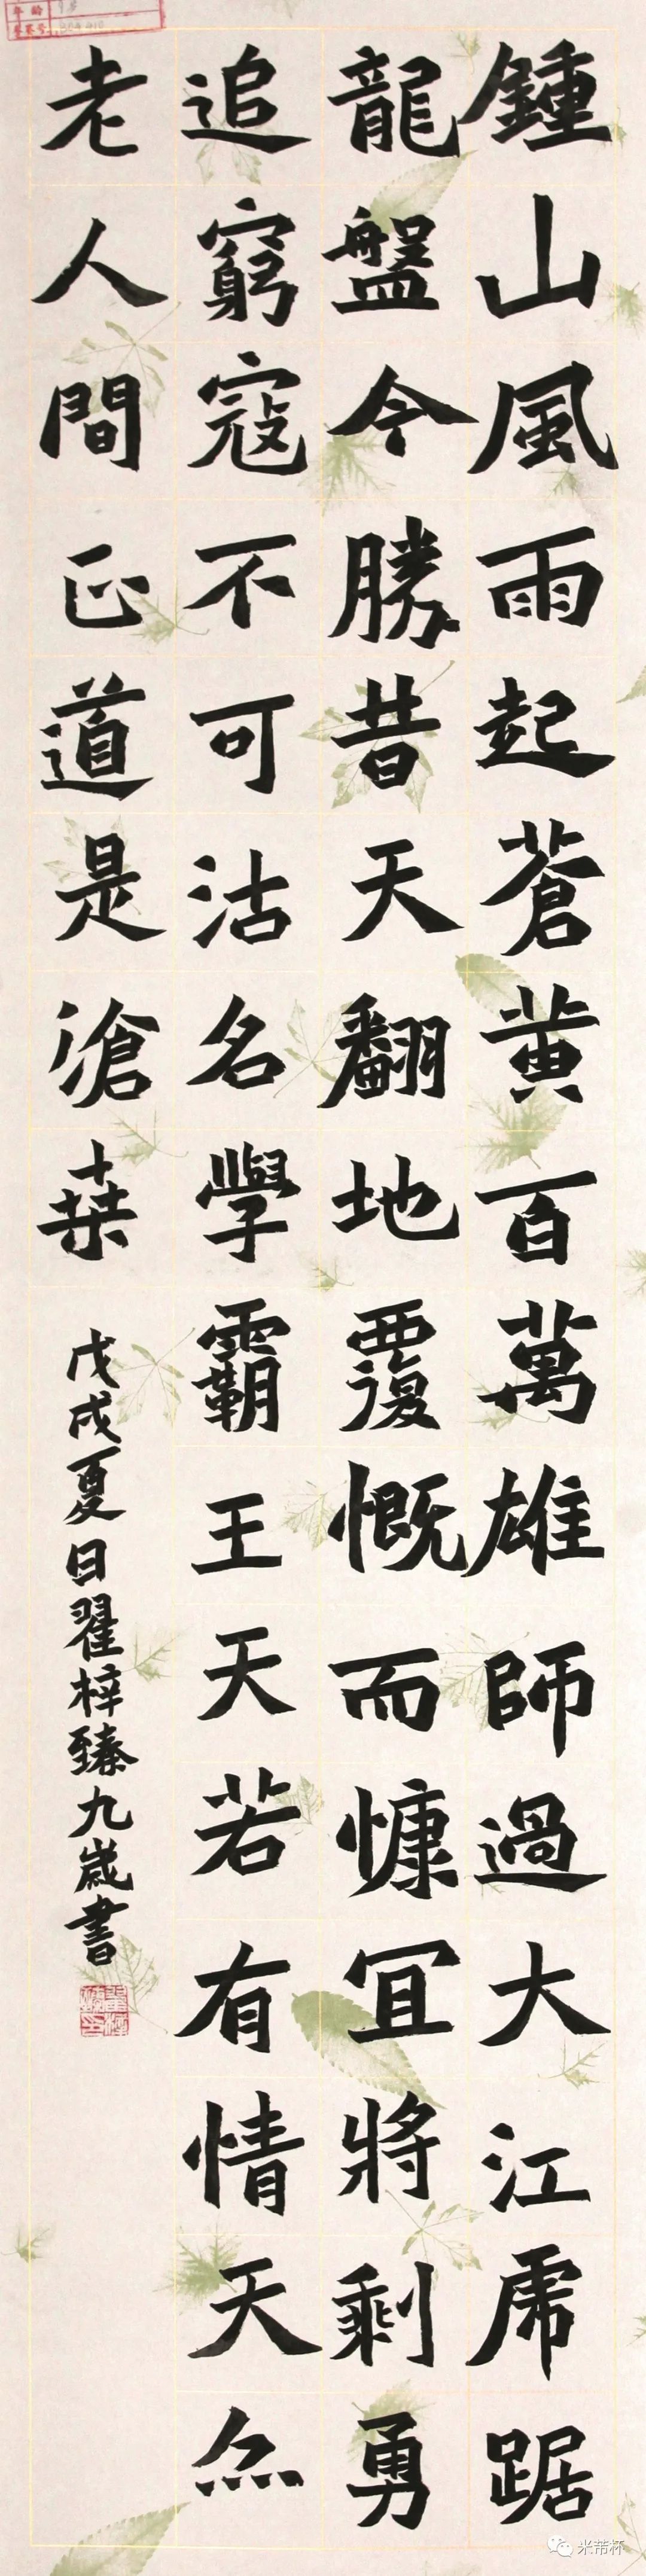 鍾山風雨起蒼黃百萬雄師過大江虎踞
龍盤今勝昔天翻地覆慨而慷宜將剩勇
追窮寇不可沽名學霸王天若有情天亦
老人間正道是滄桑
戊戌夏日翟梓臻九歲書
年龄 9岁
米芾杯